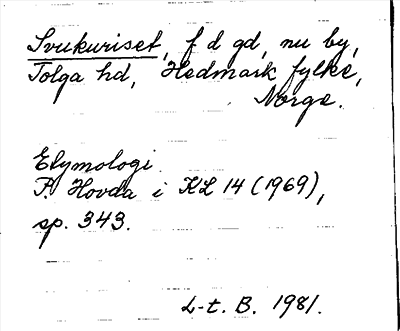 Svukuriset, f d gd, nu by,
Tolga hd, Hedmark fylke,
Norge.
Etymologi
P. Hovda i KL 14 (1969),
sp. 343.
L-t. B. 1981.